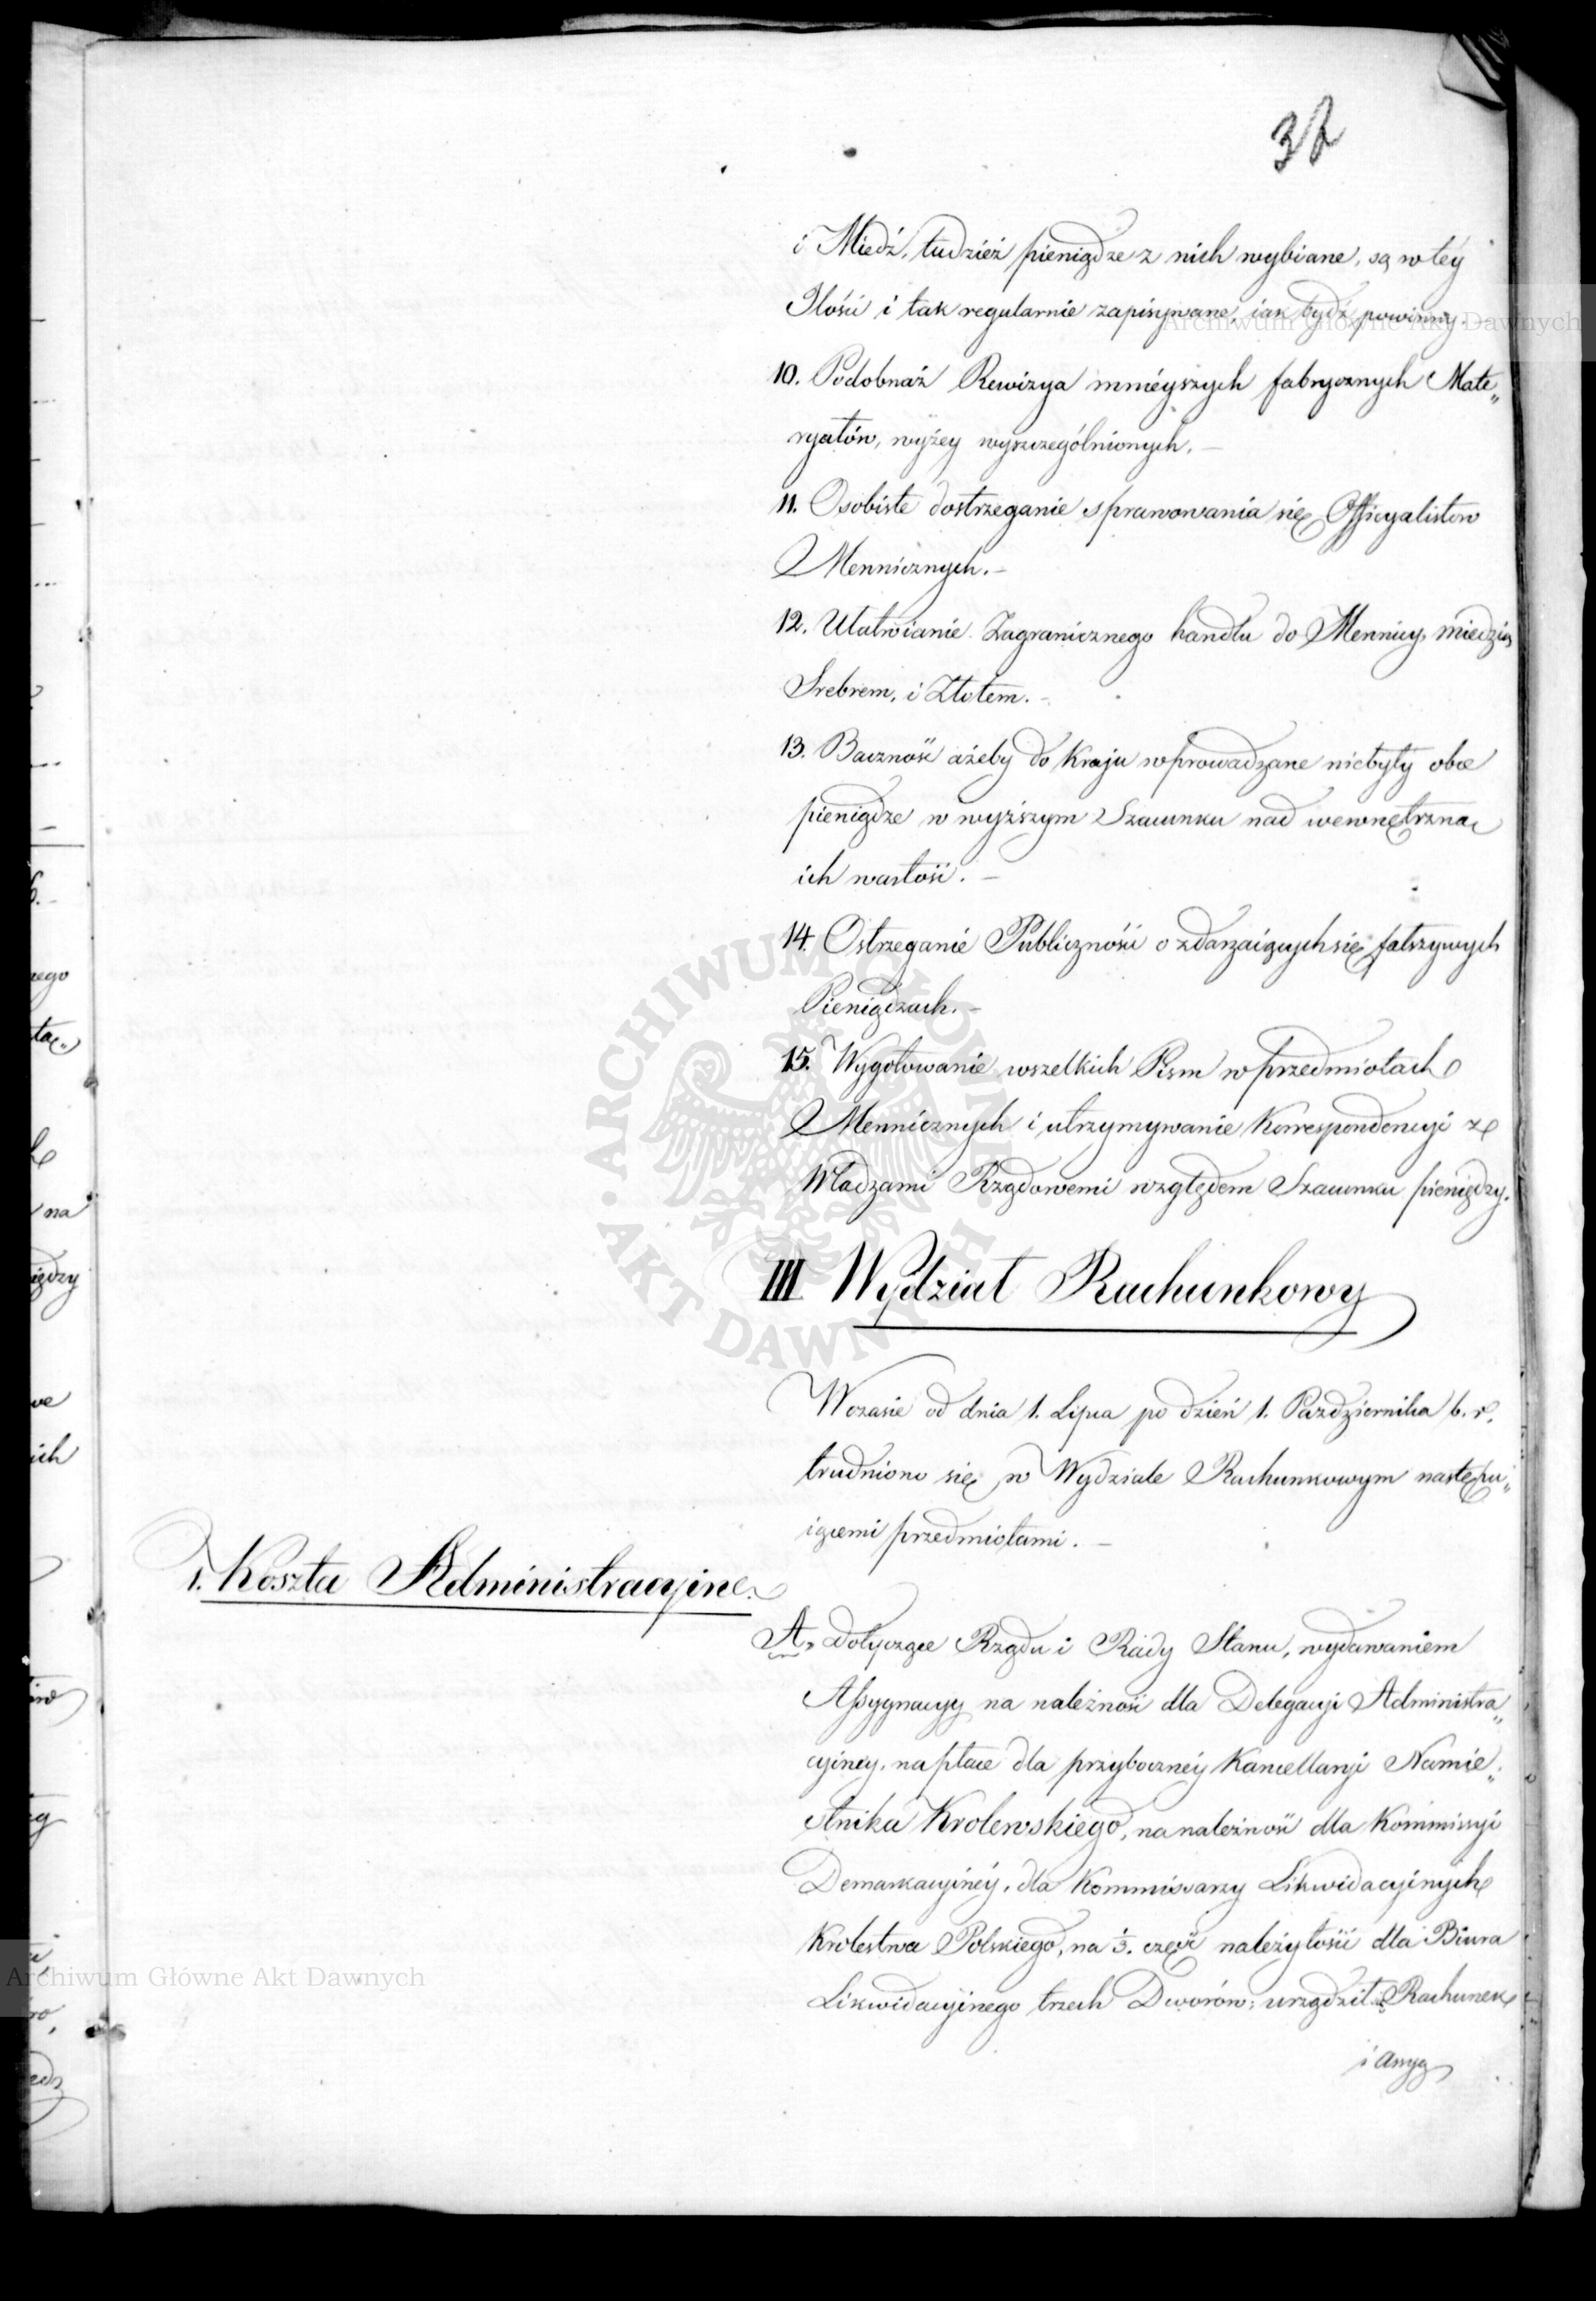 37
i Miedź, tudzież pieniądze z nich wybiane, są w téy
Ilości i tak regularnie zapisywane, iak bydź powinny. —
10. Podobnaż Rewizya mnieyszych fabrycznych Mate„
ryałów, wyżey wyszczególnionych. —
11. Osobiste dostrzeganie sprawowania się Officyalistow
Mennicznych. —
12. Ułatwianie Zagranicznego handlu do Mennicy, miedzią
Srebrem, i Złotem. —
13. Baczność ażeby do Kraju wprowadzane niebyły obce
pieniądze w wyższym Szacunku nad wewnętrzną
ich wartość. —
14. Ostrzeganie Publiczności o zdarzaiących się fałszywych
Pieniądzach. —
15. Wygotowanie wszelkich Pism w przedmiotach
Mennicznych i utrzymywanie Korrespondencyi z
Władzami Rządowemi względem Szacunku pieniędzy.
III Wydział Rachunkowy
W czasie od dnia 1. Lipca po dzień 1. Pazdziernika b. r.
trudniono się w Wydziale Rachunkowym następu„
iącemi przedmiotami. —
1. Koszta Administracyine.
A, dotyczące Rządu i Rady Stanu, wydawaniem
Assygnacyy na należność dla Delegacyi Administra„
cyiney, na płace dla przyboczney Kancellaryi Namie„
stnika Krolewskiego, na należność dla Kommissyi
Demarkacyinéy, dla Kommissarzy Likwidacyinych
Krolestwa Polskiego, na 1/3. część należytości dla Biura
Likwidacyinego trzech Dworów; urządził Rachunek
i assyg
Archiwum Główne Akt Dawnych
Archiwum Główne Akt Dawnych
ARCHIWUM GŁÓWNE AKT DAWNYCH